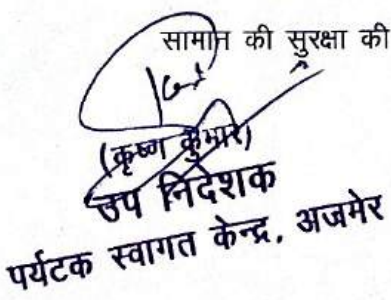 सामान की सुरक्षा की
(कृष्ण कुमार)
उप निदेशक
पर्यटक स्वागत केन्द्र, अजमेर